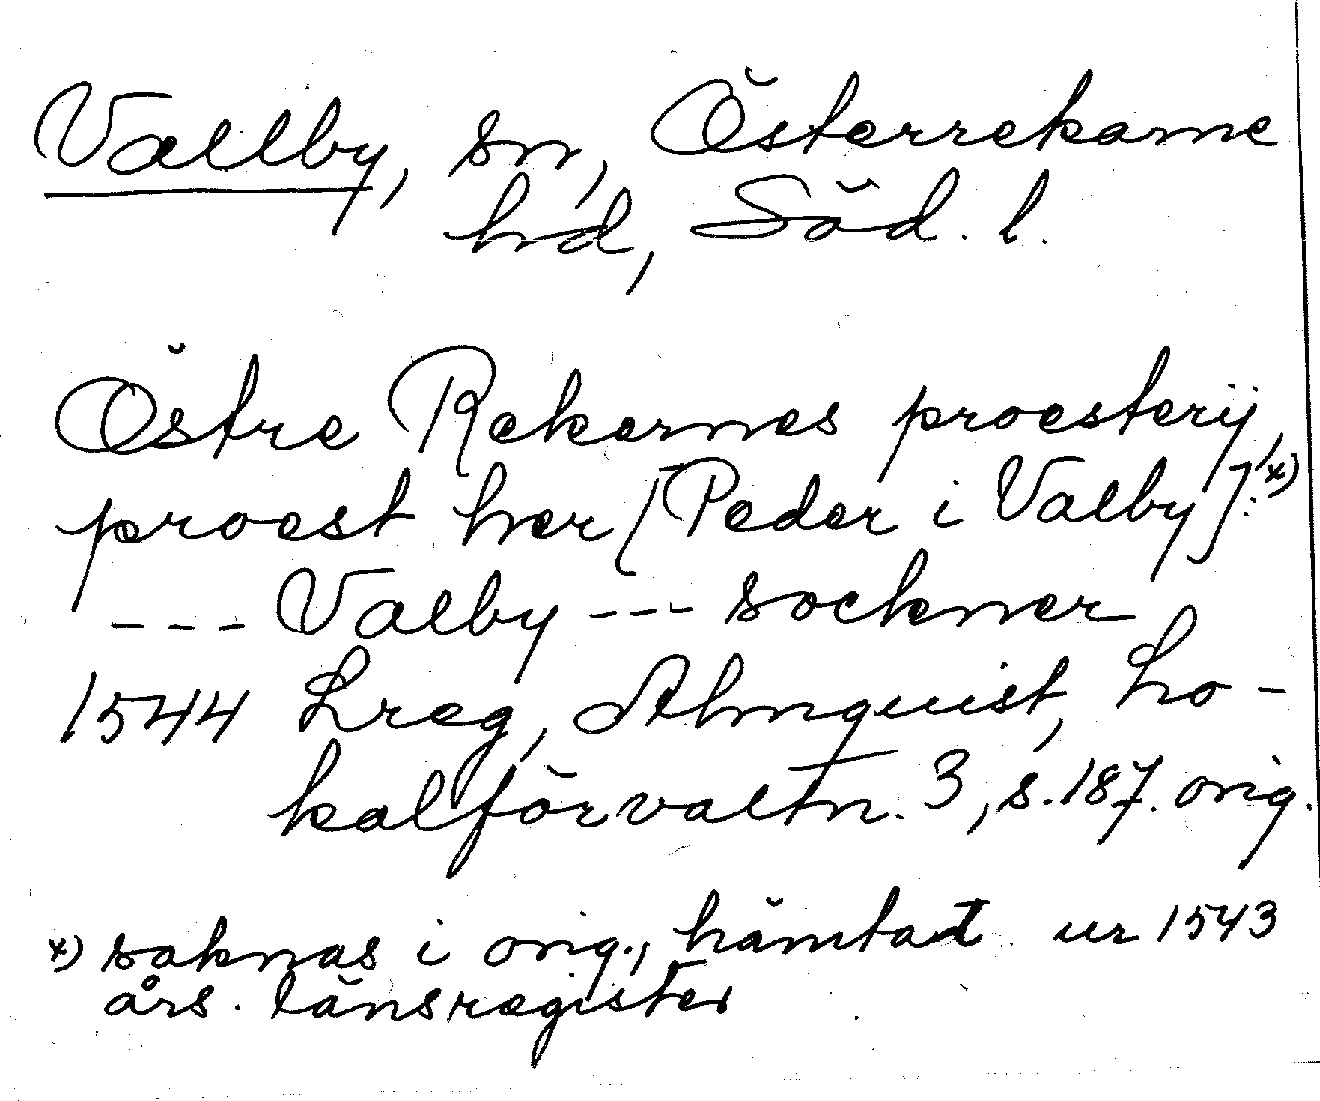 Vallby, sn, Österrekarne
hd, Söd. l.
Östre Rekarnes proesterij,
proest her [Peder i Valby].*)
--- Valby --- sockner
1544 Lreg, Almquist, Lo-
kalförvaltn. 3, s. 187. orig.
*) saknas i orig., hämtat ur 1543
års. länsregister